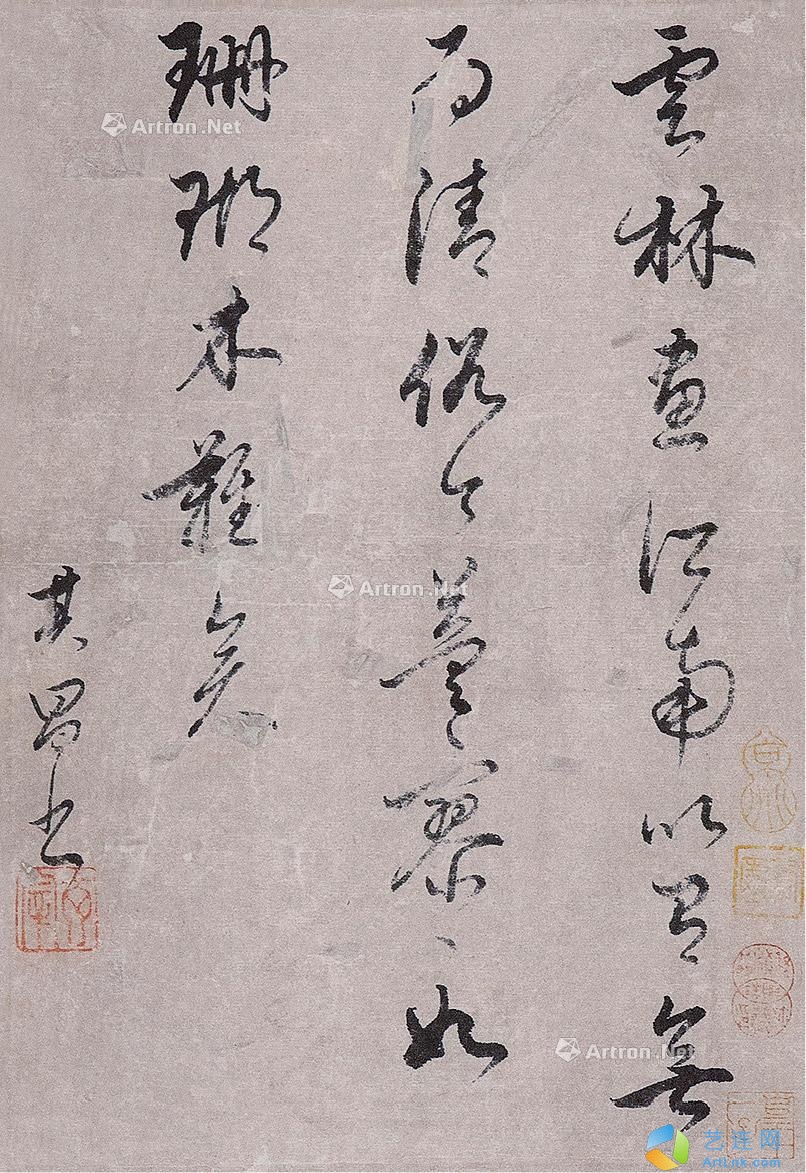 雲林畫江南以有無
為清俗今蓋寥〻如
珊瑚木難矣
其昌書
Artron.Net
Artron.Net
Artron.Net
艺连网
ArtLink.com